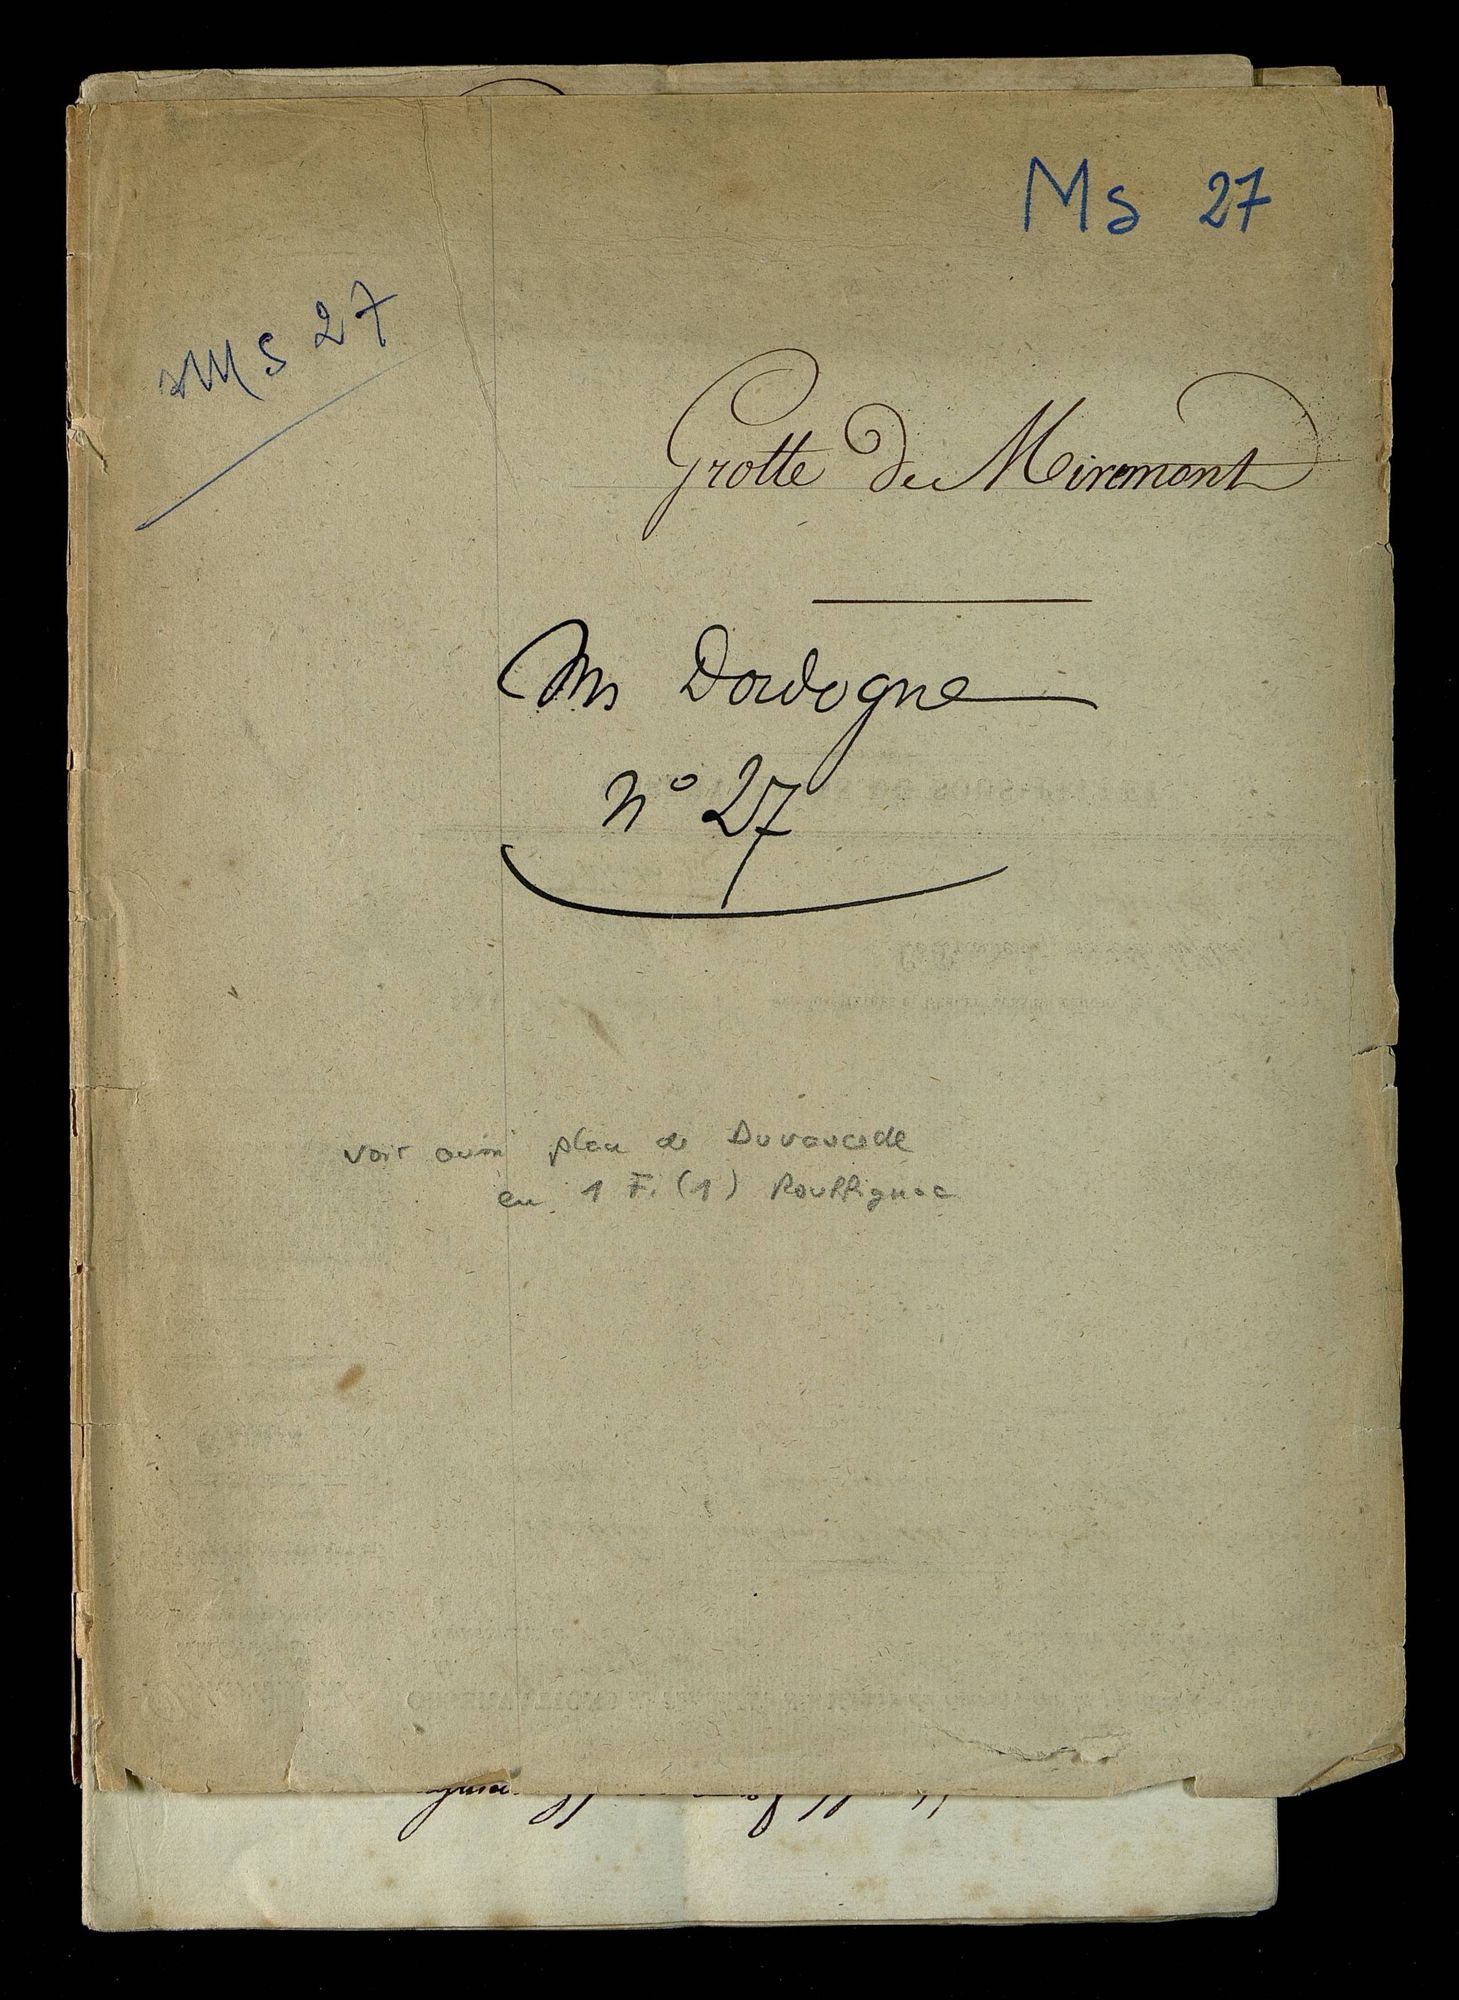 Ms 27
MS 27
Grotte de Miremont
Ms Dordogne
n° 27
voir aussi plan de
en 1 Fi (1) Rouffignac